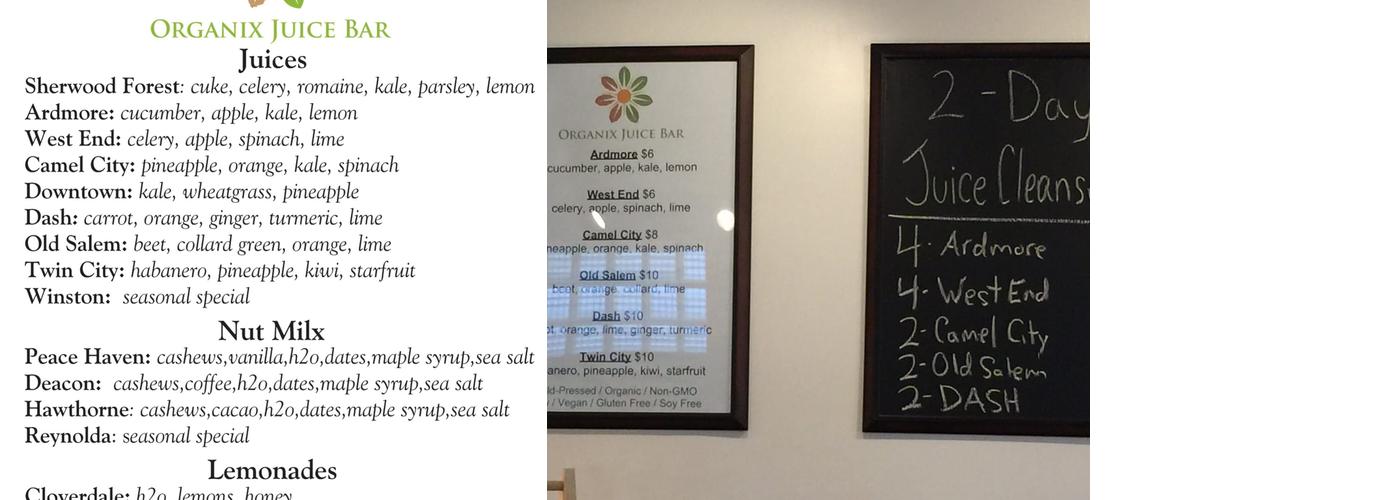 ORGANIX JUICE BAR
Juices
Sherwood Forest: cuke, celery, romaine, kale, parsley, lemon
Ardmore: cucumber, apple, kale, lemon
West End: celery, apple, spinach, lime
Camel City: pineapple, orange, kale, spinach
Downtown: kale, wheatgrass, pineapple
Dash: carrot, orange, ginger, turmeric, lime
Old Salem: beet, collard green, orange, lime
Twin City: habanero, pineapple, kiwi, starfruit
Winston: seasonal special
Nut Milx
Peace Haven: cashews,vanilla,h2o,dates,maple syrup,sea salt
Deacon: cashews,coffee,h2o,dates,maple syrup,sea salt
Hawthorne: cashews,cacao,h2o,dates,maple syrup,sea salt
Reynolda: seasonal special
Lemonades
Cloverdale: h2o, lemons, honey
ORGANIX JUICE BAR
Ardmore $6
cucumber, apple, kale, lemon
West End $6
celery, apple, spinach, lime
Camel City $8
neapple, orange, kale, spinach
Old Salem $10
beet, orange, collard, lime
Dash $10
ot, orange, lime, ginger, turmeric
Twin City $10
anero, pineapple, kiwi, starfruit
ld-Pressed / Organic / Non-GMO
/ Vegan / Gluten Free / Soy Free
2-Day
Juice Cleans
4. Ardmore
4. West End
2- Camel City
2- Old Salem
2- DASH